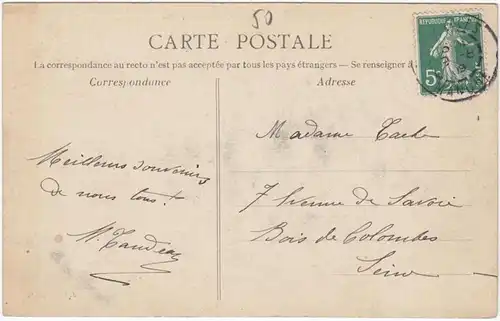 50
CARTE POSTALE
La correspondance au recto n'est pas acceptée par tous les pays étrangers — Se renseigner à
Correspondance
Adresse
REPUBLIQUE FRANCAISE
5c
Meilleurs souvenirs
de nous tous!
Madame
7 Avenue de Savoie
Bois de Colombes
Seine